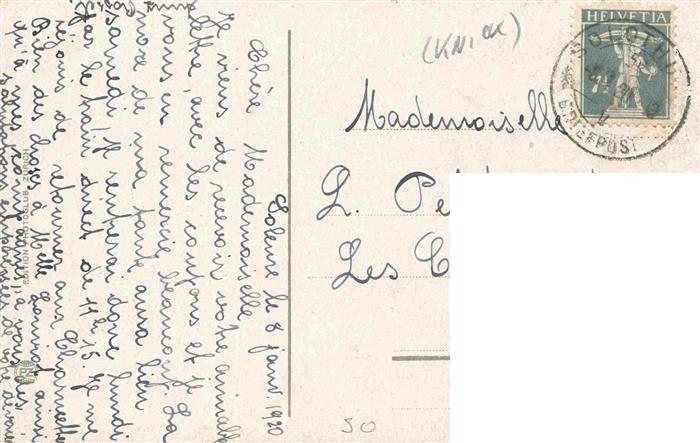 Soleure le 8 janv. 1920
Chère Mademoiselle,
Je viens de recevoir votre aimable
lettre, avec les coupons et je
vous en remercie beaucoup. La
noce de ma tante aura lieu
samedi, je rentrerai donc lundi
par le train direct de 11h 15. Je me
réjouis de retourner aux
Bien des choses à Melle ainsi
qu'à mes
salutations empressées de votre
EDITION PHOTOGLOB ZÜRICH
PZ
(KNIAK)
HELVETIA
7½
SOLOTHURN
BRIEFPOST
Mademoiselle
L. Pe
Les C
50